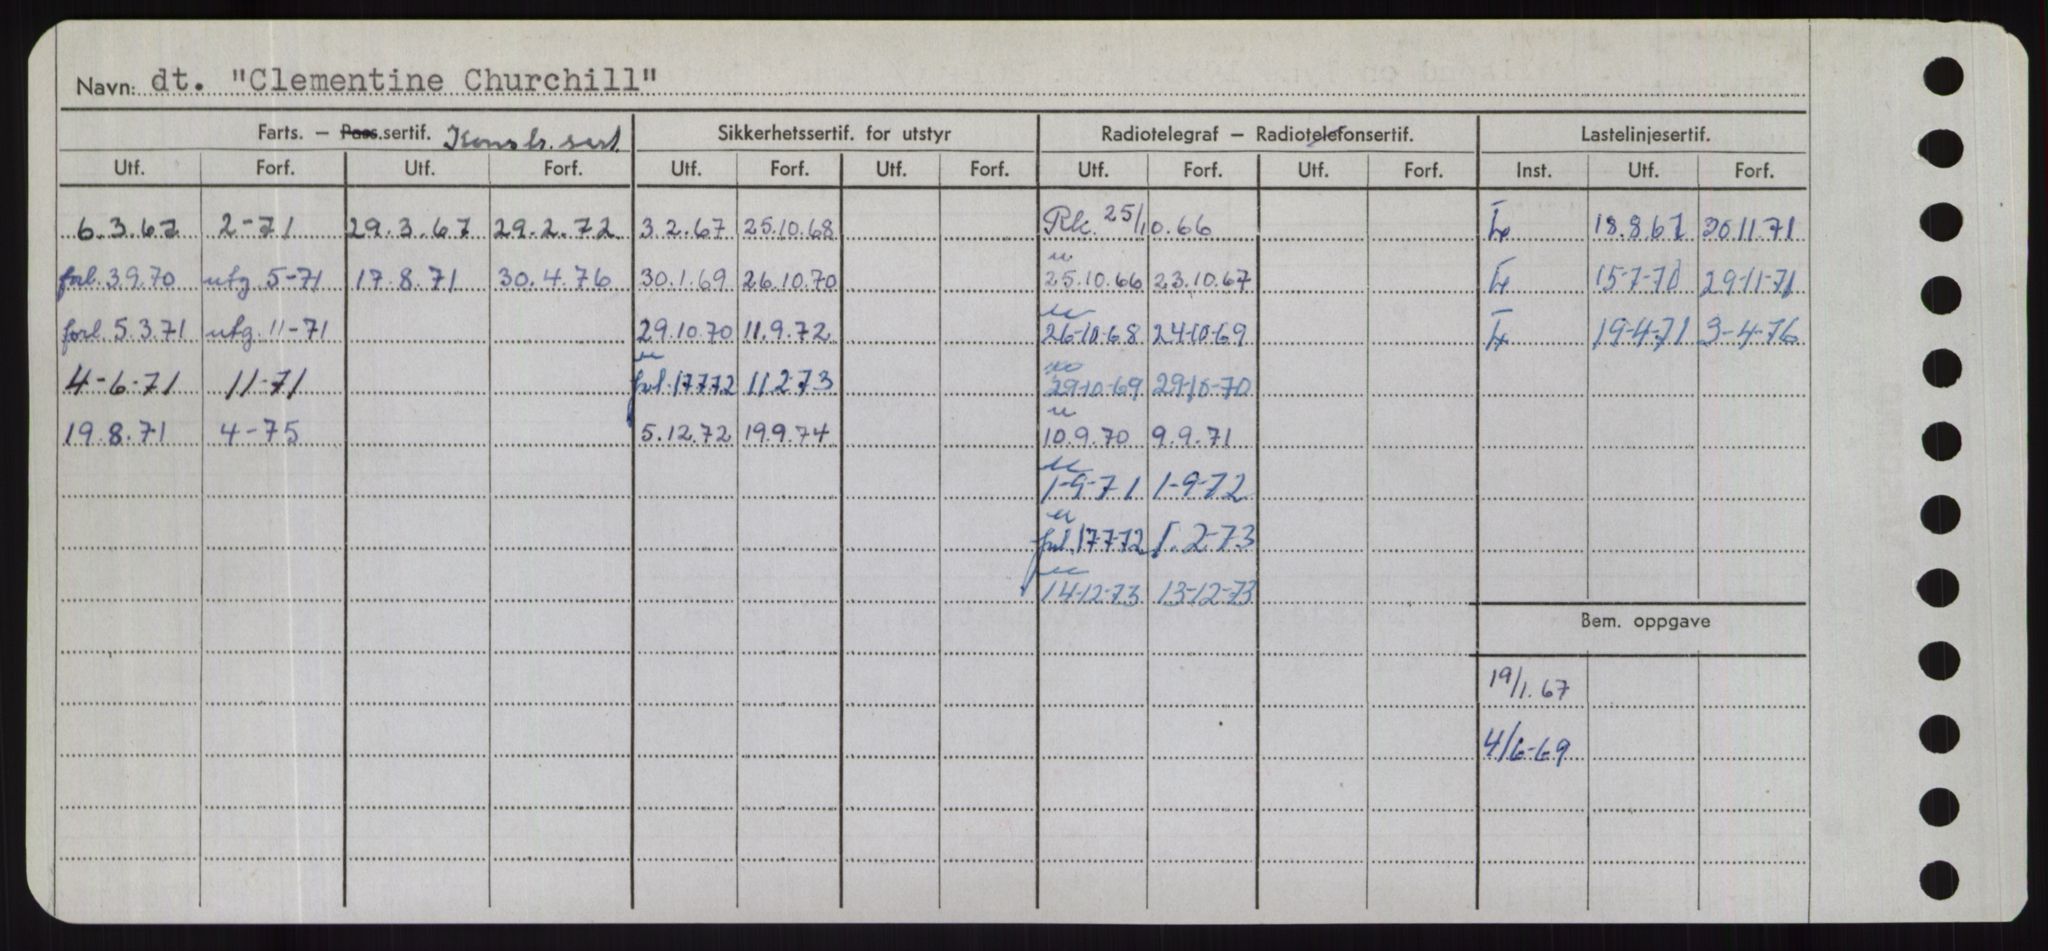 Navn: dt. "Clementine Churchill"
Farts. – Pass.sertif. Konstr. sert. Sikkerhetssertif. for utstyr Radiotelegraf – Radiotelefonsertif. Lastelinjesertif.
Utf. Forf. Utf. Forf. Utf. Forf. Utf. Forf. Utf. Forf. Utf. Forf. Inst. Utf. Forf.
6.3.67 2-71 29.3.67 29.2.72 3.2.67 25.10.68 Rk. 25/10.66 18.8.67 30.11.71
forl. 3.9.70 utg. 5-71 17.8.71 30.4.76 30.1.69 26.10.70 25.10.66 23.10.67 15-7-70 29-11-71
forl. 5.3.71 utg. 11-71 29.10.70 11.9.72 26-10-68 24-10-69 19-4-71 3-4-76
4-6-71 11-71 forl. 17.7.72 11.2.73 29-10-69 29-10-70
19.8.71 4-75 5.12.72 19.9.74 10.9.70 9.9.71
1-9-71 1-9-72
forl. 17.7.72 1.2-73
14-12-73 13-12-73
Bem. oppgave
19/1.67
4/6-69